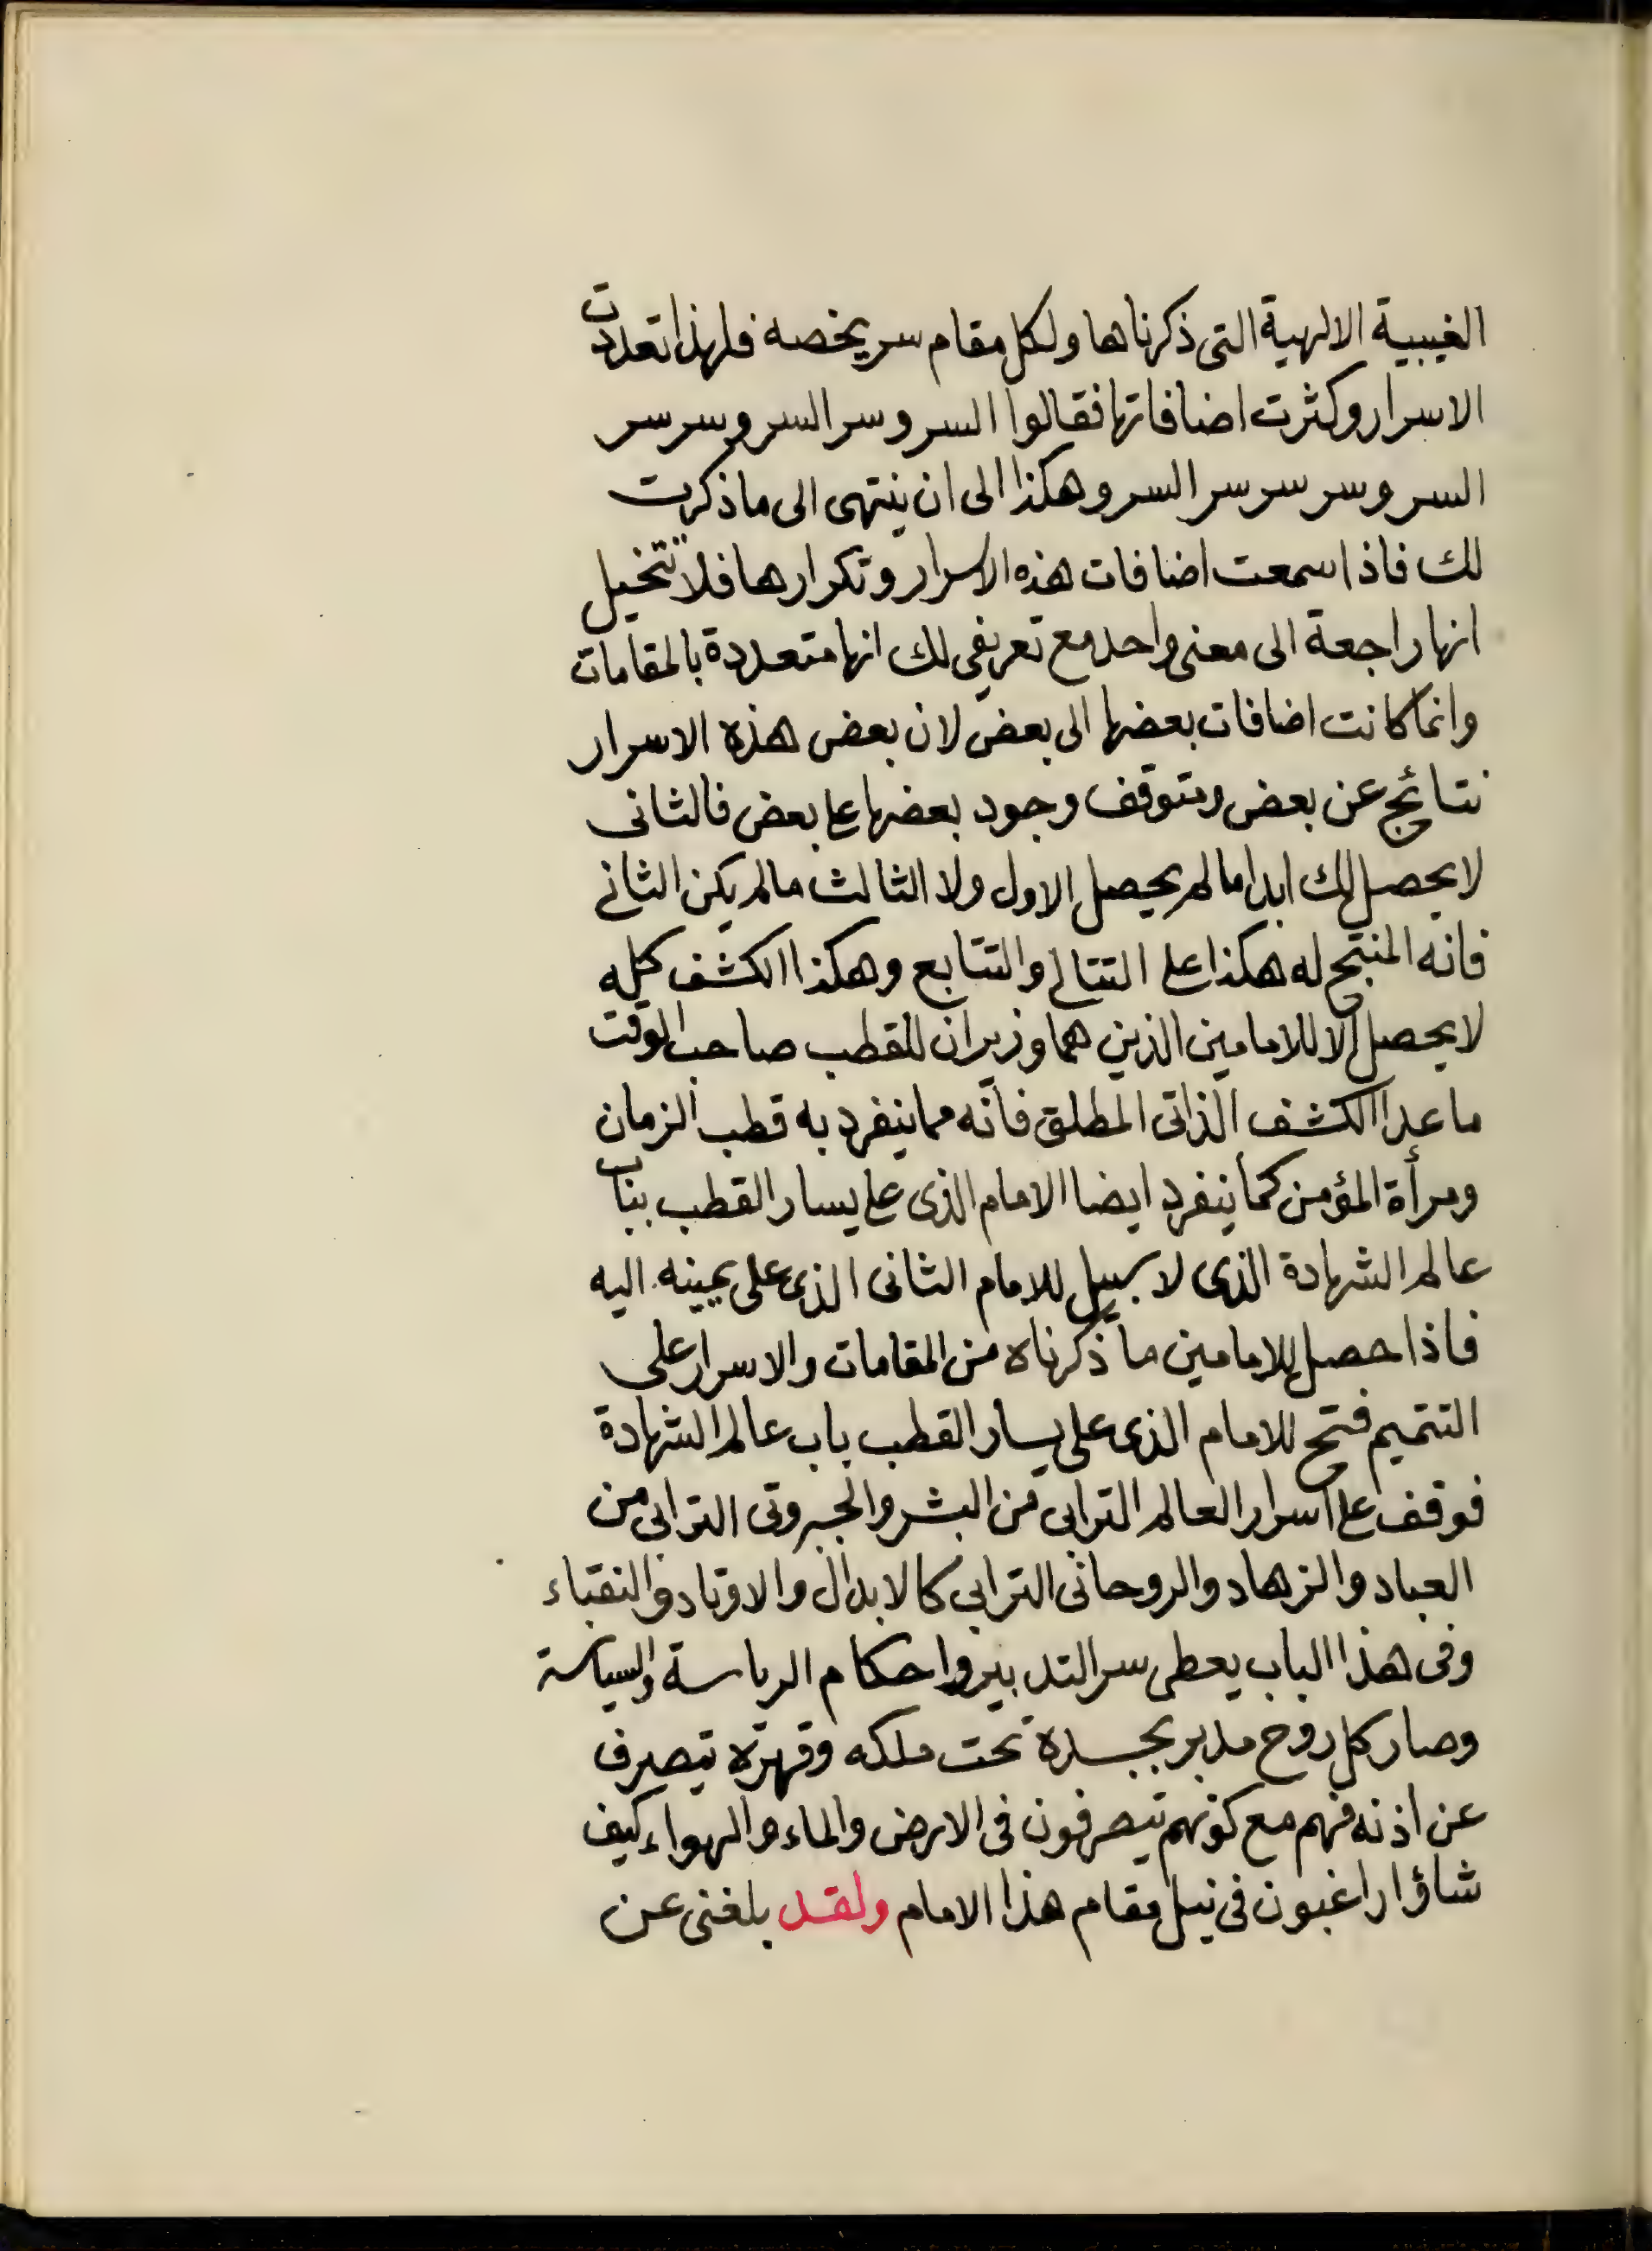 الغيبية الالهية التى ذكرناها ولكل مقام سر يخصه فلهذا تعددت
الاسرار وكثرت اضافاتها فقالوا السر وسر السر وسر سر
السر وسر سر سر السر وهكذا الى ان ينتهى الى ما ذكرت
لك فاذا سمعت اضافات هذه الاسرار وتكرارها فلا تتخيل
انها راجعة الى معنى واحد مع تعريفى لك انها متعددة بالمقامات
وانما كانت اضافات بعضها الى بعض لان بعض هذه الاسرار
نتائج عن بعض ومتوقف وجود بعضها على بعض فالثانى
لا يحصل لك ابدا ما لم يحصل الاول ولا الثالث ما لم يكن الثانى
فانه المنتج له هكذا على التتالى والتتابع وهكذا الكشف كله
لا يحصل الا للامامين الذين هما وزيران للقطب صاحب الوقت
ما عدا الكشف الذاتى المطلق فانه مما ينفرد به قطب الزمان
ومرأة المؤمن كما ينفرد ايضا الامام الذى على يسار القطب بباب
عالم الشهادة الذى لا سبيل للامام الثانى الذى على يمينه اليه
فاذا حصل للامامين ما ذكرناه من المقامات والاسرار على
التتميم فتح للامام الذى على يسار القطب باب عالم الشهادة
فوقف على اسرار العالم الترابى من البشر والجبروتى الترابى من
العباد والزهاد والروحانى الترابى كالابدال والاوتاد والنقباء
وفى هذا الباب يعطى سر التدبير واحكام الرياسة والسياسة
وصار كل روح مدبر بجسده تحت ملكه وقهره يتصرف
عن اذنه فهم مع كونهم يتصرفون فى الارض والماء والهواء كيف
شاؤا راغبون فى نيل مقام هذا الامام ولقد بلغنى عن